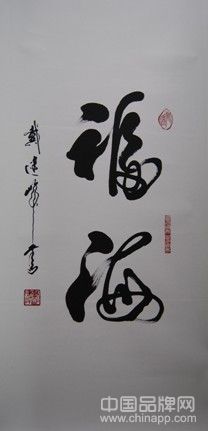 福海
戴建峰书
中国品牌网
www.chinapp.com